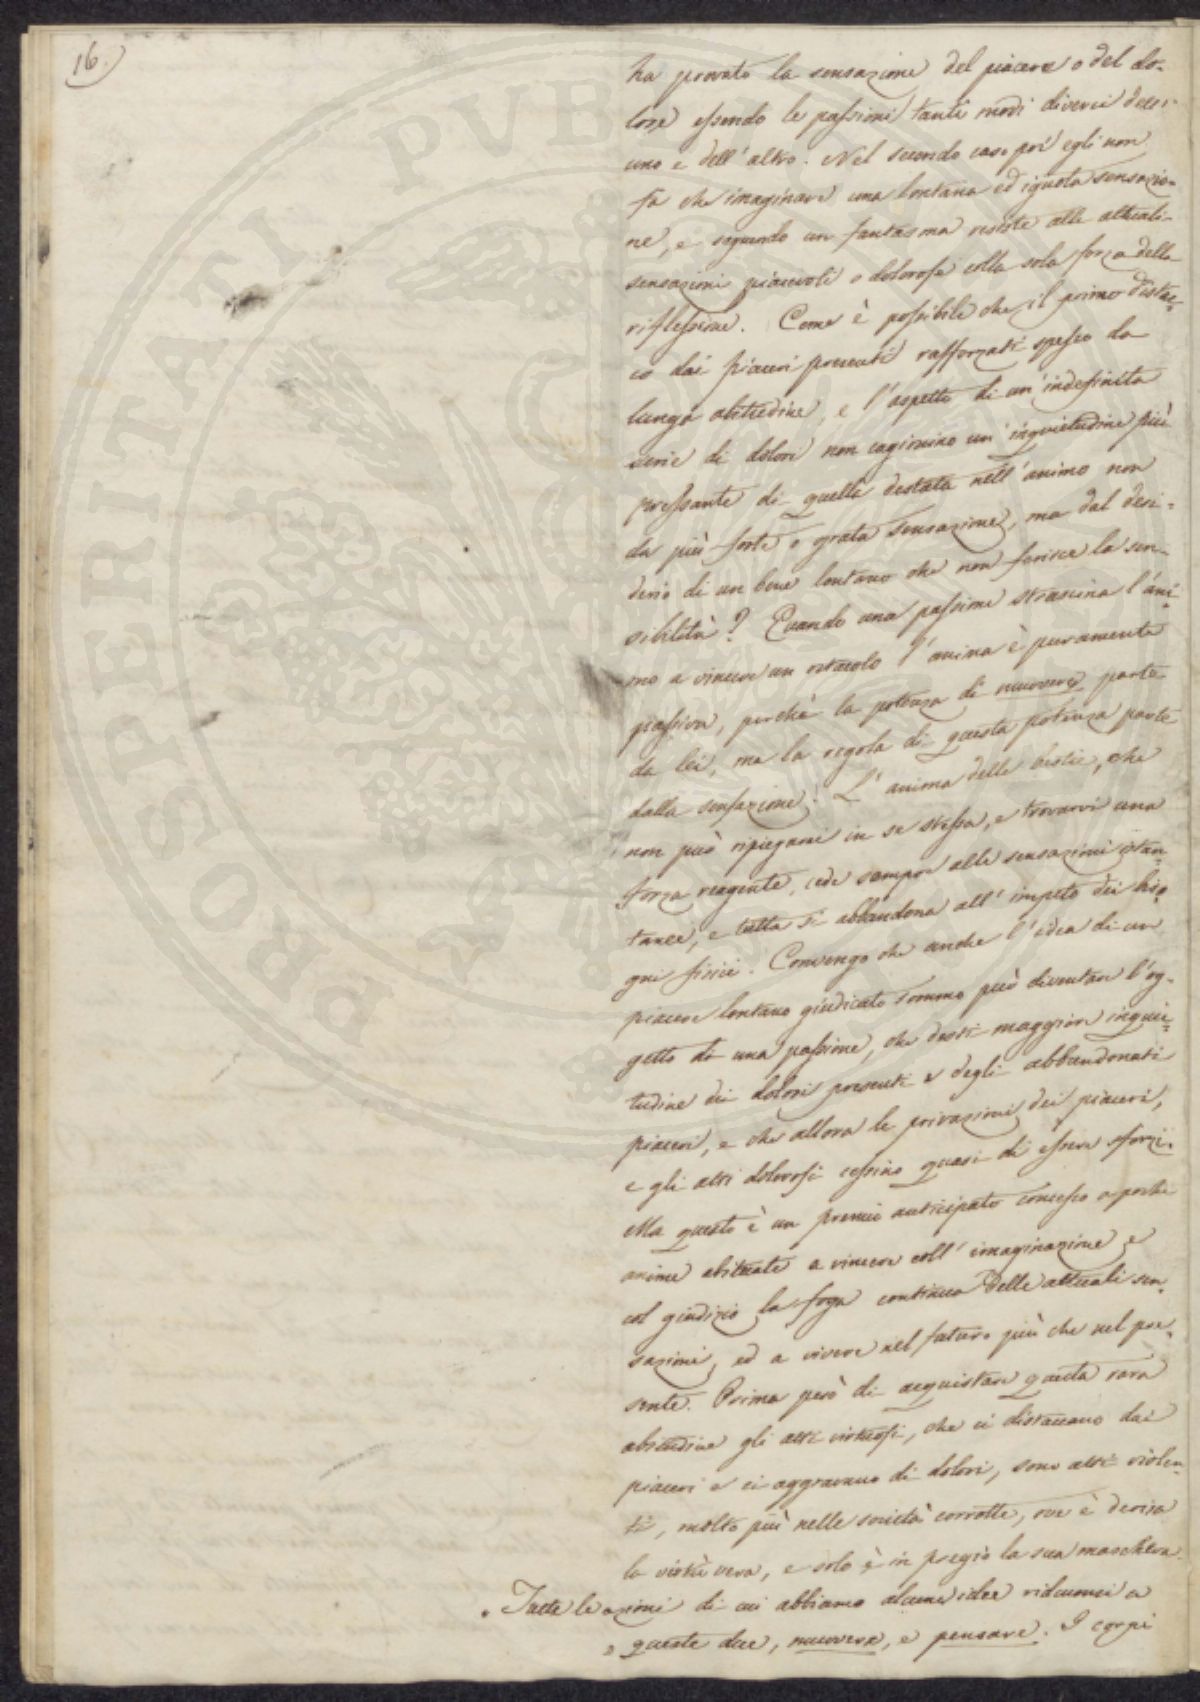 16.
ha provato la sensazione del piacere o del do-
lore essendo le passioni tanti modi diversi dell'
uno e dell'altro. Nel secondo caso poi egli non
fa che imaginare una lontana ed ignota sensazio-
ne, e seguendo un fantasma resiste alle attuali
sensazioni piacevoli o dolorose colla sola forza della
riflessione. Come è possibile che il primo distac-
co dai piaceri presenti rafforzati spesso da
lunga abitudine, e l'aspetto di un'indefinita
serie di dolori non cagionino un'inquietudine più
pressante di quella destata nell'animo non
da più forte o grata sensazione, ma dal desi-
derio di un bene lontano che non ferisce la sen-
sibilità? Quando una passione strascina l'ani-
mo a vincere un ostacolo l'anima è puramente
passiva, perchè la potenza di muovere parte
da lei, ma la regola di questa potenza parte
dalla sensazione. L'anima delle bestie, che
non può ripiegarsi in se stessa, e trovarvi una
forza reagente, cede sempre alle sensazioni istan-
tanee, e tutta si abbandona all'impeto dei biso-
gni fisici. Convengo che anche l'idea di un
piacere lontano giudicato sommo può diventare l'og-
getto di una passione, che desti maggiore inquie-
tudine dei dolori presenti e degli abbandonati
piaceri, e che allora le privazioni dei piaceri,
e gli atti dolorosi cessino quasi di essere sforzi.
Ma questo è un premio anticipato concesso a poche
anime abituate a vincere coll'imaginazione e
col giudizio la foga continua delle attuali sen-
sazioni, ed a vivere nel futuro più che nel pre-
sente. Prima però di acquistare questa rara
abitudine gli atti virtuosi, che ci distaccano dai
piaceri e ci aggravano di dolori, sono atti violen-
ti, molto più nelle società corrotte, ove è derisa
la virtù vera, e solo è in pregio la sua maschera.
Tutte le azioni di cui abbiamo alcune idee riduconsi a
queste due, muovere, e pensare. I corpi
PROSPERITATI PVBLICAE